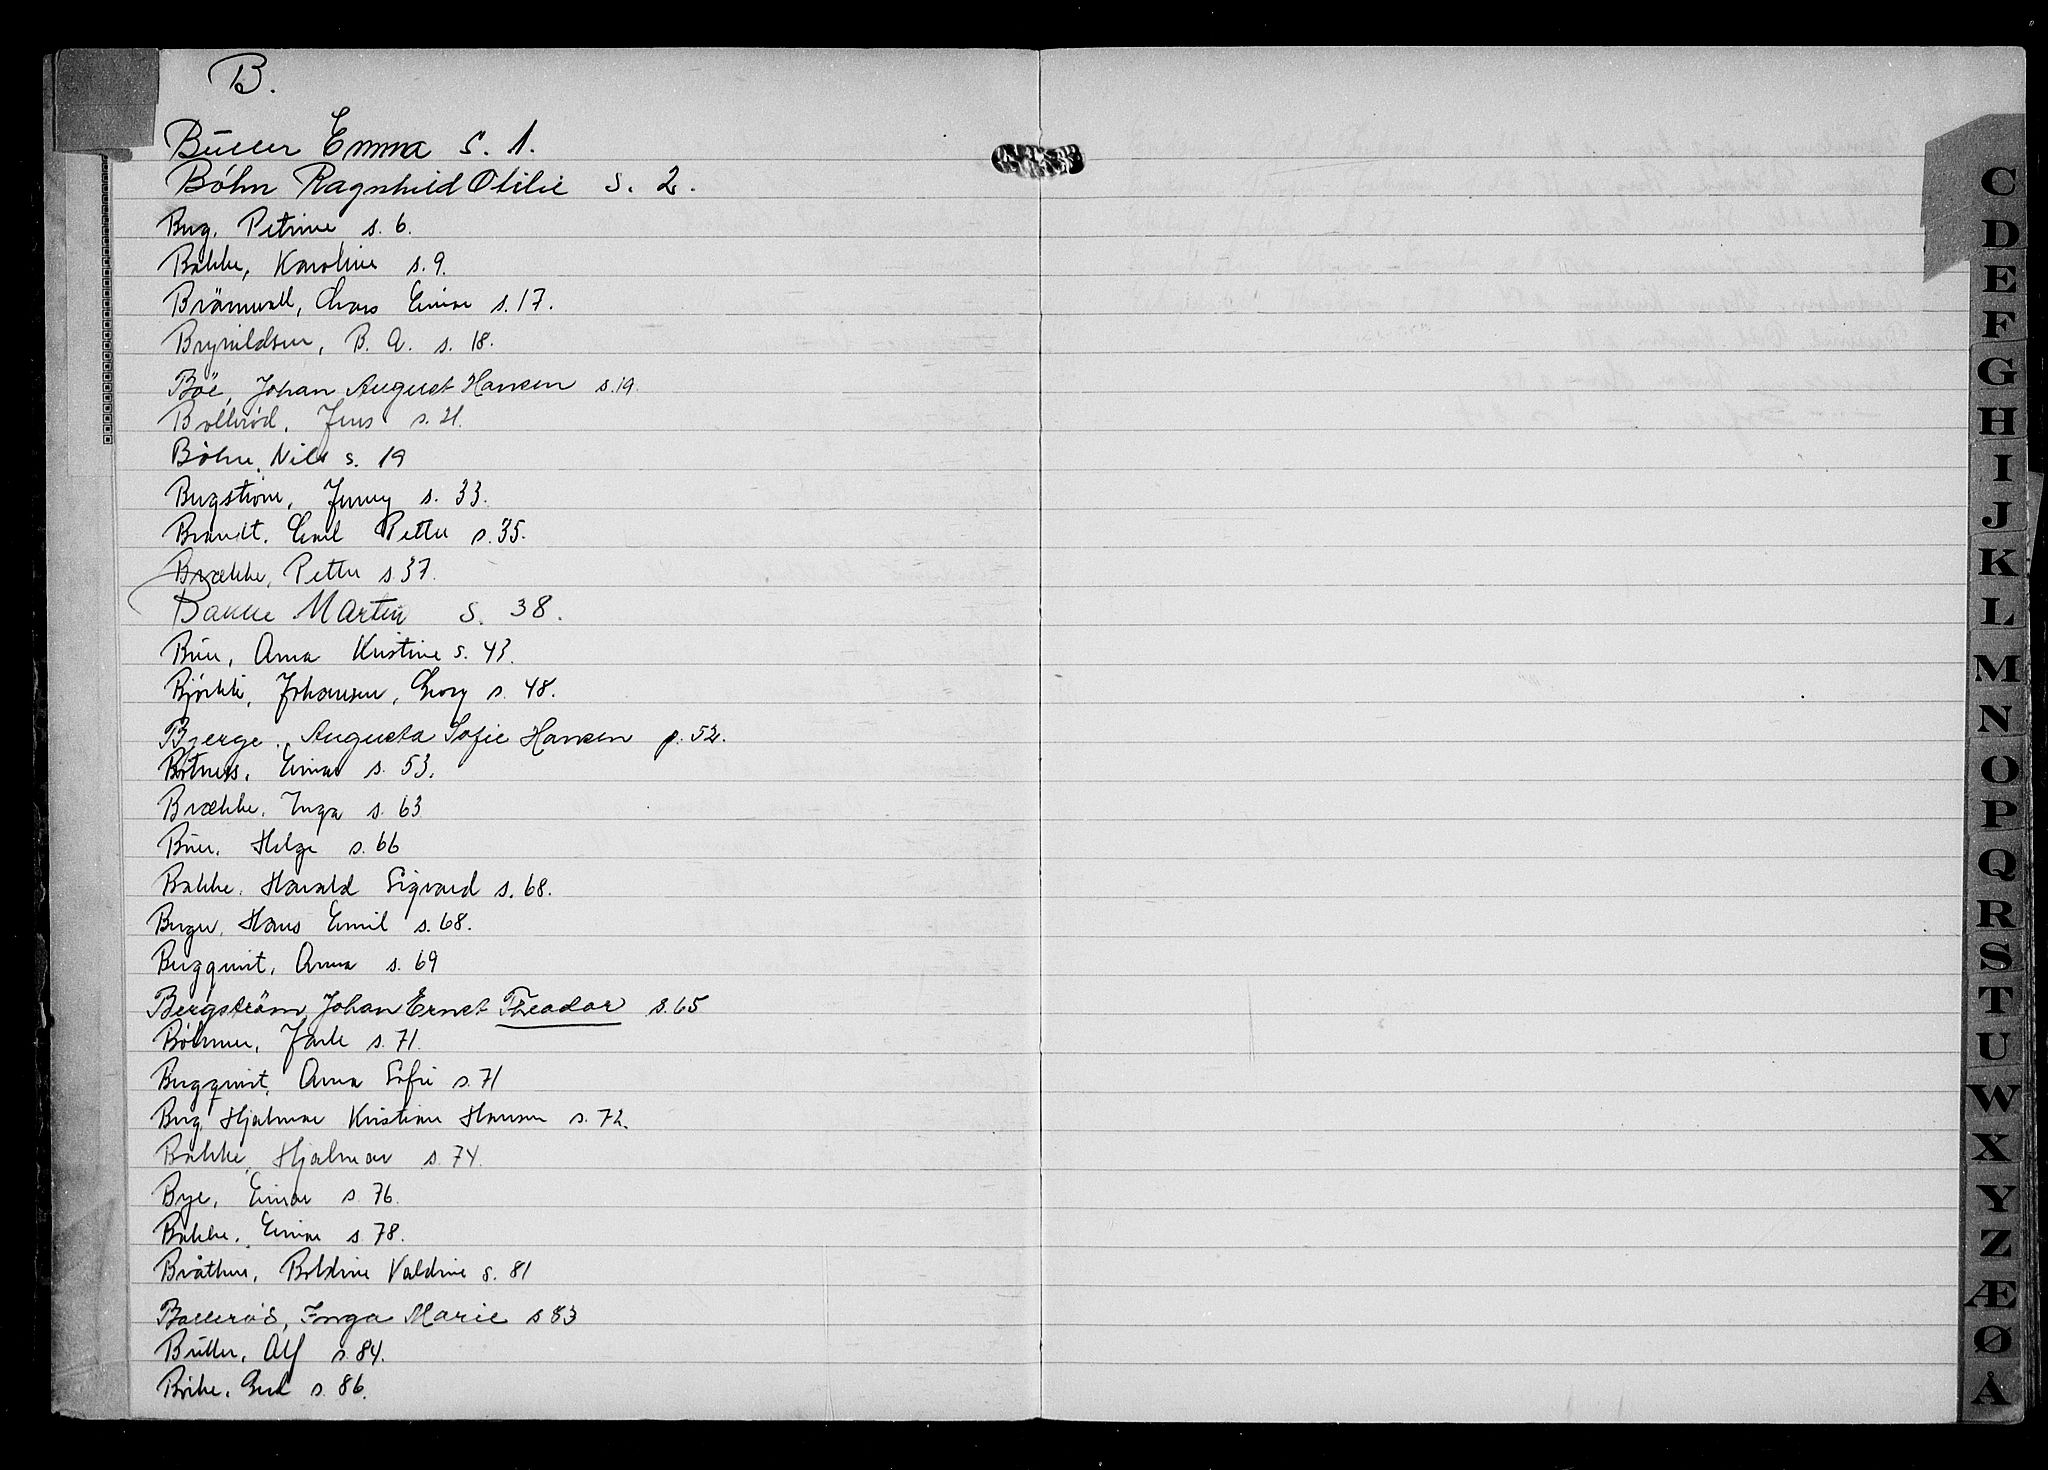 B.
Büller Emma s. 1.
Bøhn Ragnhild Otilie s. 2.
Berg, Petrine s. 6.
Bakke, Karoline s. 9.
Brännvall, Einar s. 17.
Brynildsen, B. A. s. 18.
Bøe, Johan August Hansen s. 19.
Bollerød, Jens s. 21.
Bøhn, Nils s. 19
Bergstrøm, Jenny s. 33.
Brandt, Carl Petter s. 35.
Brække, Petter s. 37.
Bakke Martin s. 38.
Anna Kristine s. 43.
Johansen, Georg s. 48.
Bjerge, Augusta Sofie Hansen p. 52.
Einar s. 53.
Brække, Inga s. 63
Helge s. 66
Bakke, Harald Sigvard s. 68.
Berger, Hans Emil s. 68.
Bergqvist, Anna s. 69
Bergström, Johan Ernst Theodor s. 65
Bøhmer, Jarle s. 71.
Bergqvist, Anna Sofie s. 71
Berg, Hjalmar Kristian Hansen s. 72.
Bakke, Hjalmar s. 74.
Bye, Einar s. 76.
Bakke, Einar s. 78.
Bråthen, Boldine Valdine s. 81
Bollerød, Inga Marie s 83
Büller, Alf s. 84.
s. 86.
C
D
E
F
G
H
I
J
K
L
M
N
O
P
Q
R
S
T
U
W
X
Y
Z
Æ
Ø
Å